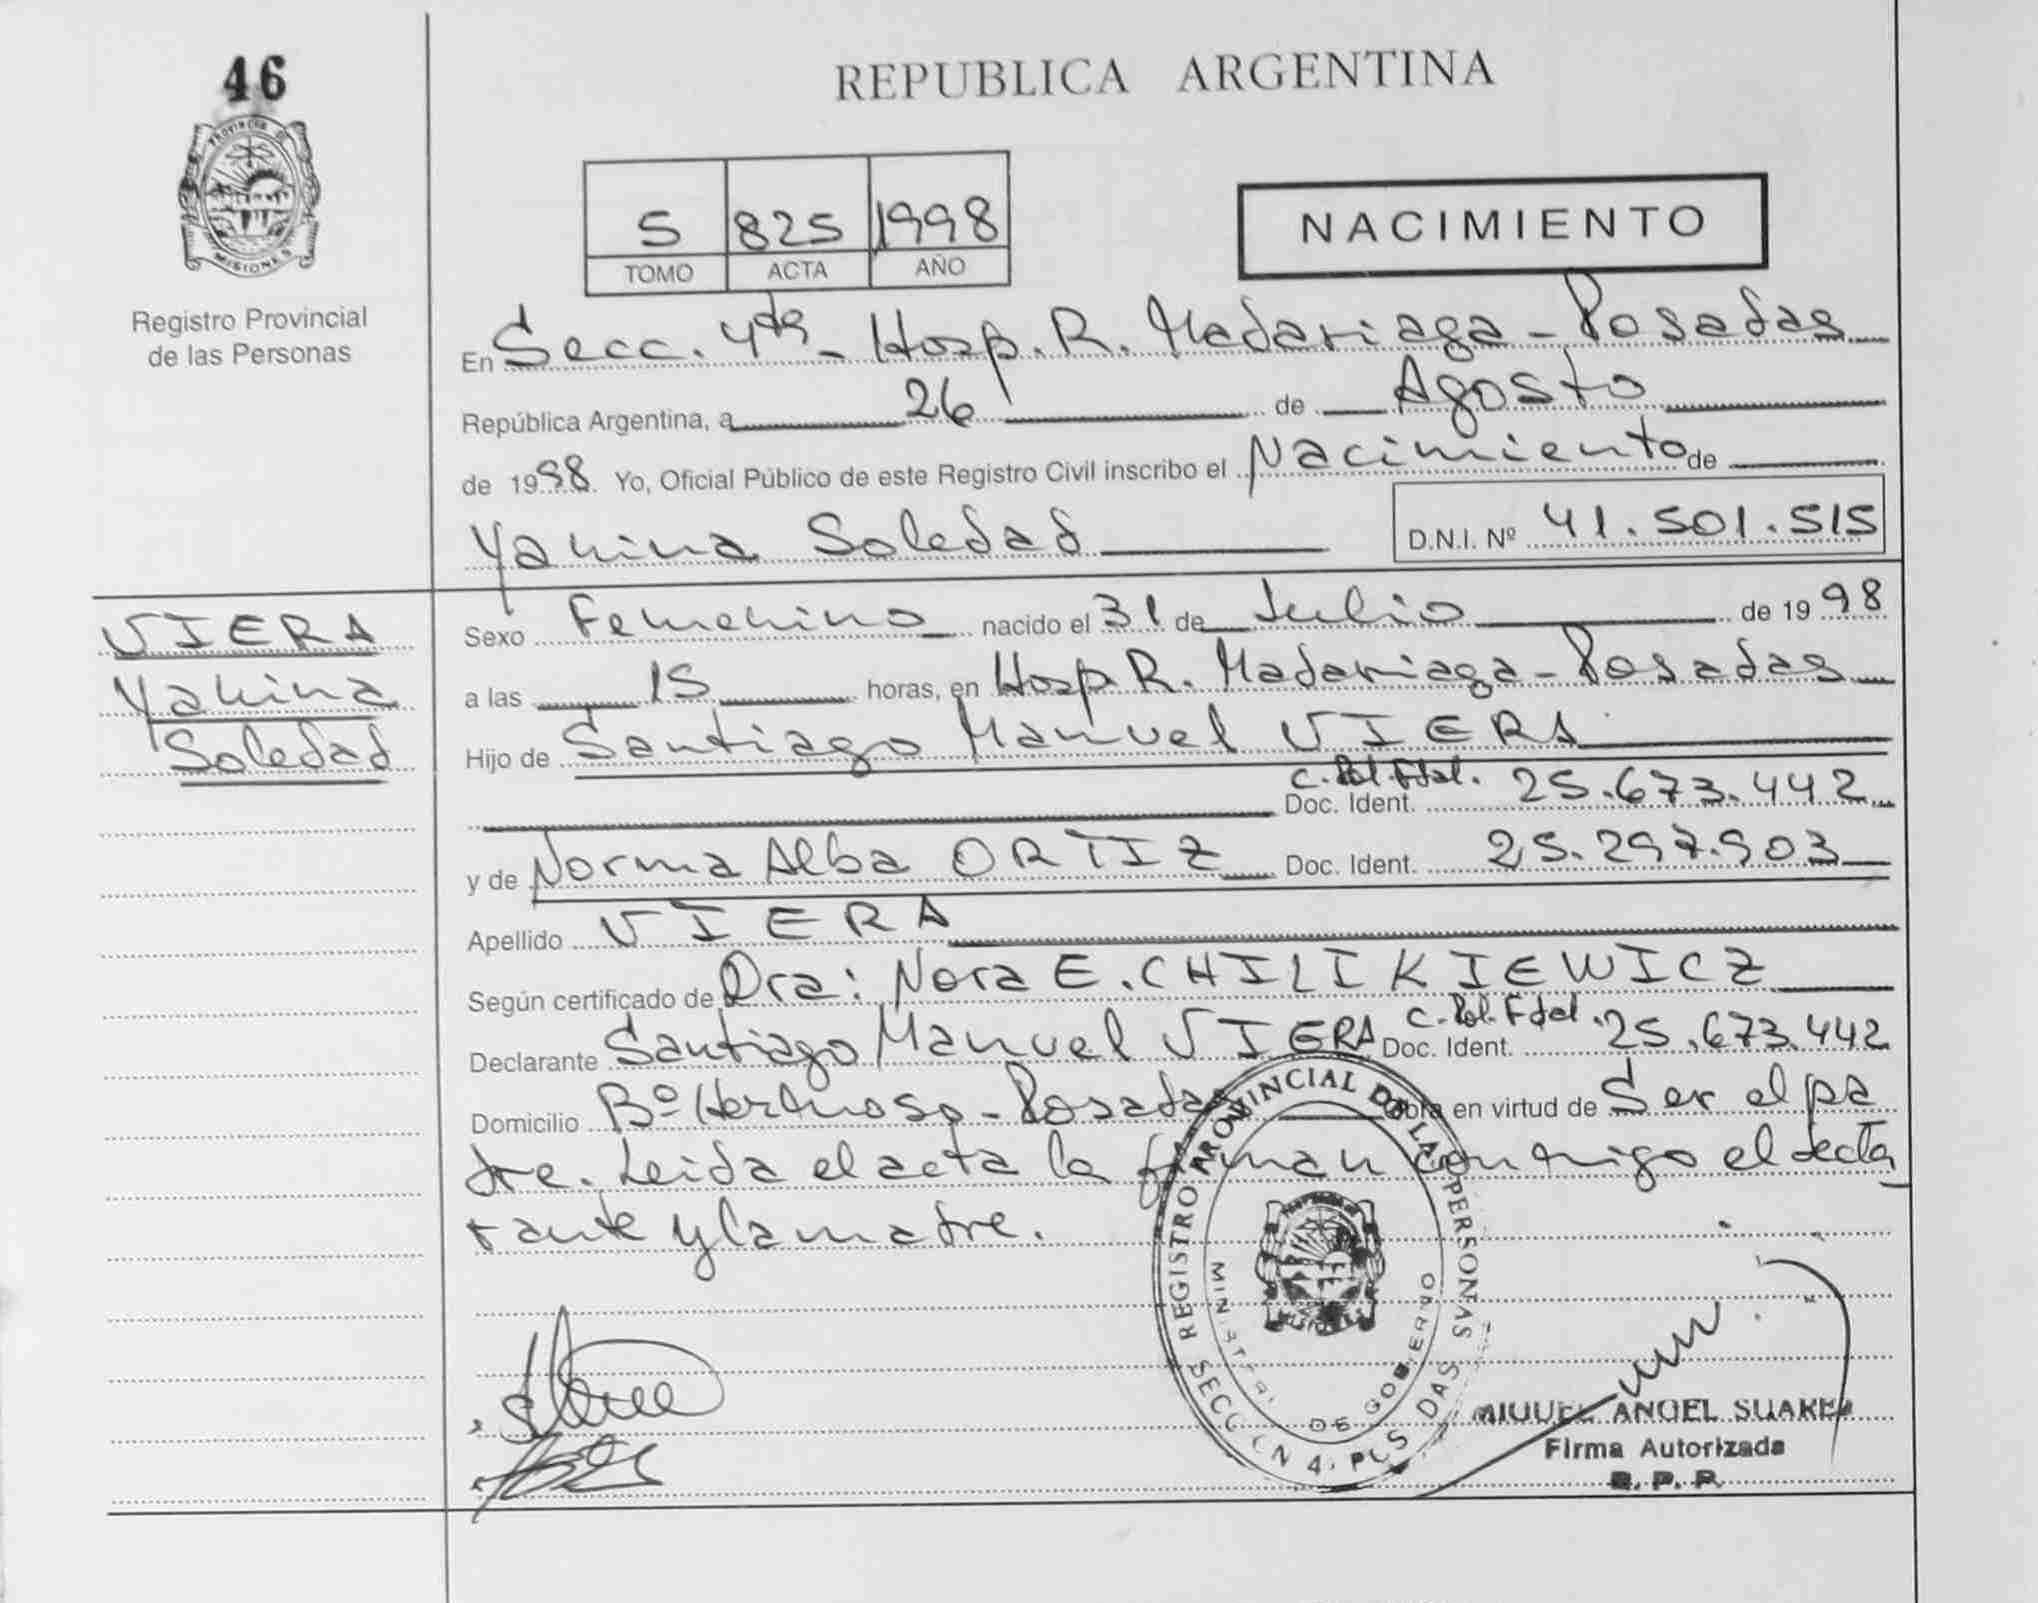 46
REPUBLICA ARGENTINA
PROVINCIA DE
MISIONES
Registro Provincial
de las Personas
5 825 1998
TOMO ACTA AÑO
NACIMIENTO
En Secc. 4ta - Hosp. R. Madariaga - Posadas
República Argentina, a 26 de Agosto
de 1998. Yo, Oficial Público de este Registro Civil inscribo el Nacimiento de
Yanina Soledad D.N.I. Nº 41.501.515
VIERA
Yanina
Soledad
Sexo Femenino nacido el 31 de Julio de 1998
a las 15 horas, en Hosp. R. Madariaga - Posadas
Hijo de Santiago Manuel VIERA
C. Pol. Fdal.
Doc. Ident. 25.673.442
y de Norma Alba ORTIZ Doc. Ident. 25.297.903
Apellido VIERA
Según certificado de Dra: Nora E. CHILIKIEWICZ
Declarante Santiago Manuel VIERA C. Pol. Fdal. Doc. Ident. 25.673.442
Domicilio Bº Hermoso - Posadas Obra en virtud de Ser el pa
dre. Leida el acta la firman conmigo el decla
rante y la madre.
REGISTRO PROVINCIAL DE LAS PERSONAS
MINISTERIO DE GOBIERNO
SECCION 4. POSADAS
MIGUEL ANGEL SUAREZ
Firma Autorizada
R. P. P.